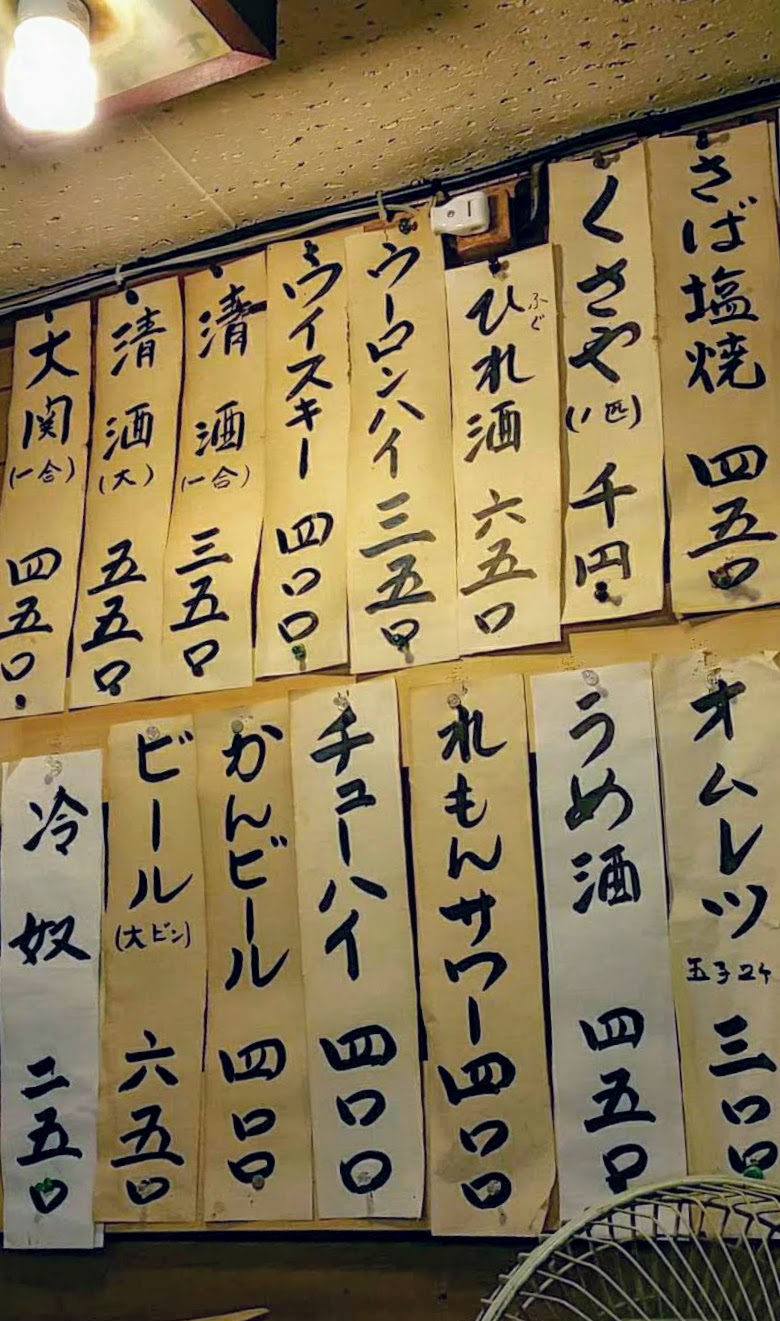 さば塩焼 四五〇
くさや(1匹) 千円
ふぐ
ひれ酒 六五〇
ウーロンハイ 三五〇
ウイスキー 四〇〇
清酒(一合) 三五〇
清酒(大) 五五〇
大関(一合) 四五〇
オムレツ 玉子2ケ 三〇〇
うめ酒 四五〇
れもんサワー 四〇〇
チューハイ 四〇〇
かんビール 四〇〇
ビール(大ビン) 六五〇
冷奴 二五〇